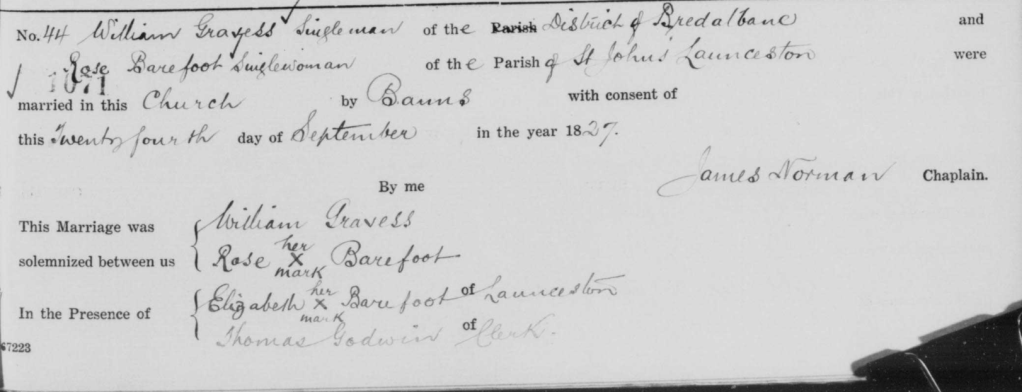 No. 44 William Gravess Singleman of the Parish District of Bredalbane and
Rose Barefoot Singlewoman of the Parish of St Johns' Launceston were
1071
married in this Church by Banns with consent of
this Twenty fourth day of September in the year 1827.
James Norman Chaplain.
By me
This Marriage was William Gravess
solemnized between us Rose her X mark Barefoot
In the Presence of Elizabeth her X mark Barefoot of Launceston
Thomas Godwin of Clerk.
67223